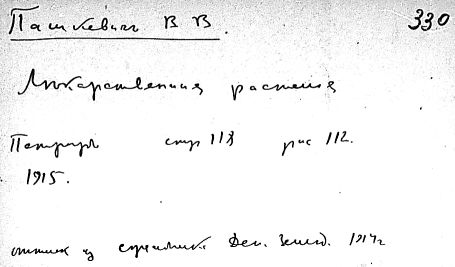 Пашкевич В В. 330
Лекарственныя растения
Петрогр стр 118 рис 112.
1915.
оттиск из Деп. Землед. 1914г